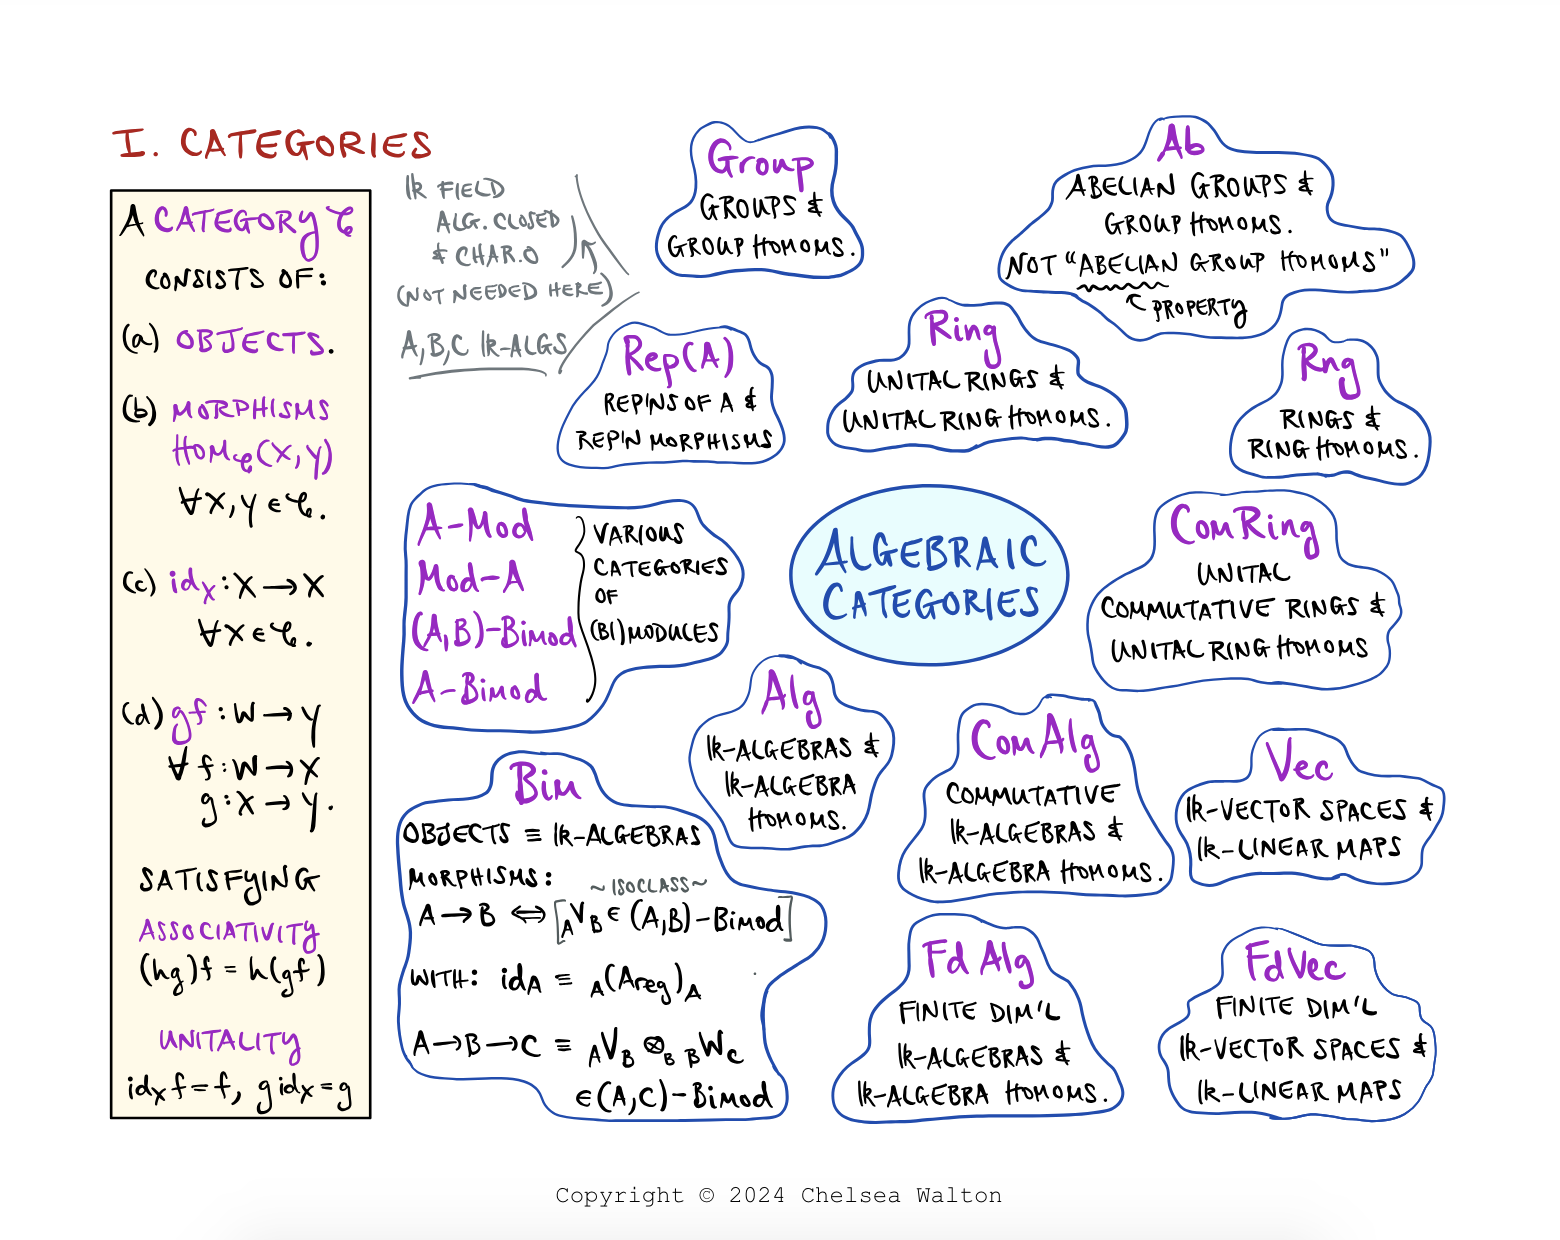 I. CATEGORIES
A CATEGORY 𝒞
CONSISTS OF:
(a) OBJECTS.
(b) MORPHISMS
Hom𝒞(X,Y)
∀X,Y ∈ 𝒞.
(c) idX : X → X
∀X ∈ 𝒞.
(d) gf : W → Y
∀ f : W → X
g : X → Y.
SATISFYING
ASSOCIATIVITY
(hg)f = h(gf)
UNITALITY
idX f = f, g idX = g
𝕜 FIELD
ALG. CLOSED
& CHAR. 0
(NOT NEEDED HERE)
A,B,C 𝕜-ALGS
Group
GROUPS &
GROUP HOMOMS.
Ab
ABELIAN GROUPS &
GROUP HOMOMS.
NOT "ABELIAN GROUP HOMOMS"
PROPERTY
Rep(A)
REP'NS OF A &
REP'N MORPHISMS
Ring
UNITAL RINGS &
UNITAL RING HOMOMS.
Rng
RINGS &
RING HOMOMS.
A-Mod
Mod-A
(A,B)-Bimod
A-Bimod
VARIOUS
CATEGORIES
OF
(BI)MODULES
ALGEBRAIC
CATEGORIES
ComRing
UNITAL
COMMUTATIVE RINGS &
UNITAL RING HOMOMS
Alg
𝕜-ALGEBRAS &
𝕜-ALGEBRA
HOMOMS.
ComAlg
COMMUTATIVE
𝕜-ALGEBRAS &
𝕜-ALGEBRA HOMOMS.
Vec
𝕜-VECTOR SPACES &
𝕜-LINEAR MAPS
Bim
OBJECTS ≡ 𝕜-ALGEBRAS
MORPHISMS:
~ISOCLASS~
A → B ⇔ [AVB ∈ (A,B)-Bimod]
WITH: idA ≡ A(Areg)A
A → B → C ≡ AVB ⊗B BWC
∈ (A,C)-Bimod
FdAlg
FINITE DIM'L
𝕜-ALGEBRAS &
𝕜-ALGEBRA HOMOMS.
FdVec
FINITE DIM'L
𝕜-VECTOR SPACES &
𝕜-LINEAR MAPS
Copyright © 2024 Chelsea Walton